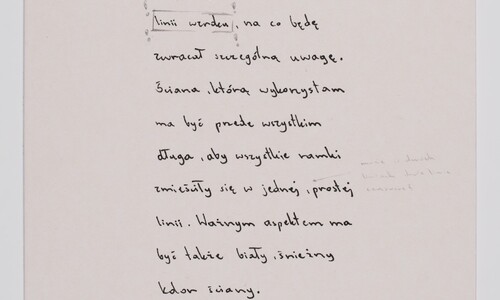 linii wzroku, na co będę
zwracał szczególną uwagę.
Ściana, którą wykorzystam
ma być przede wszystkim
długa, aby wszystkie ramki
zmieściły się w jednej, prostej
linii. Ważnym aspektem ma
być także biały, śnieżny
kolor ściany.